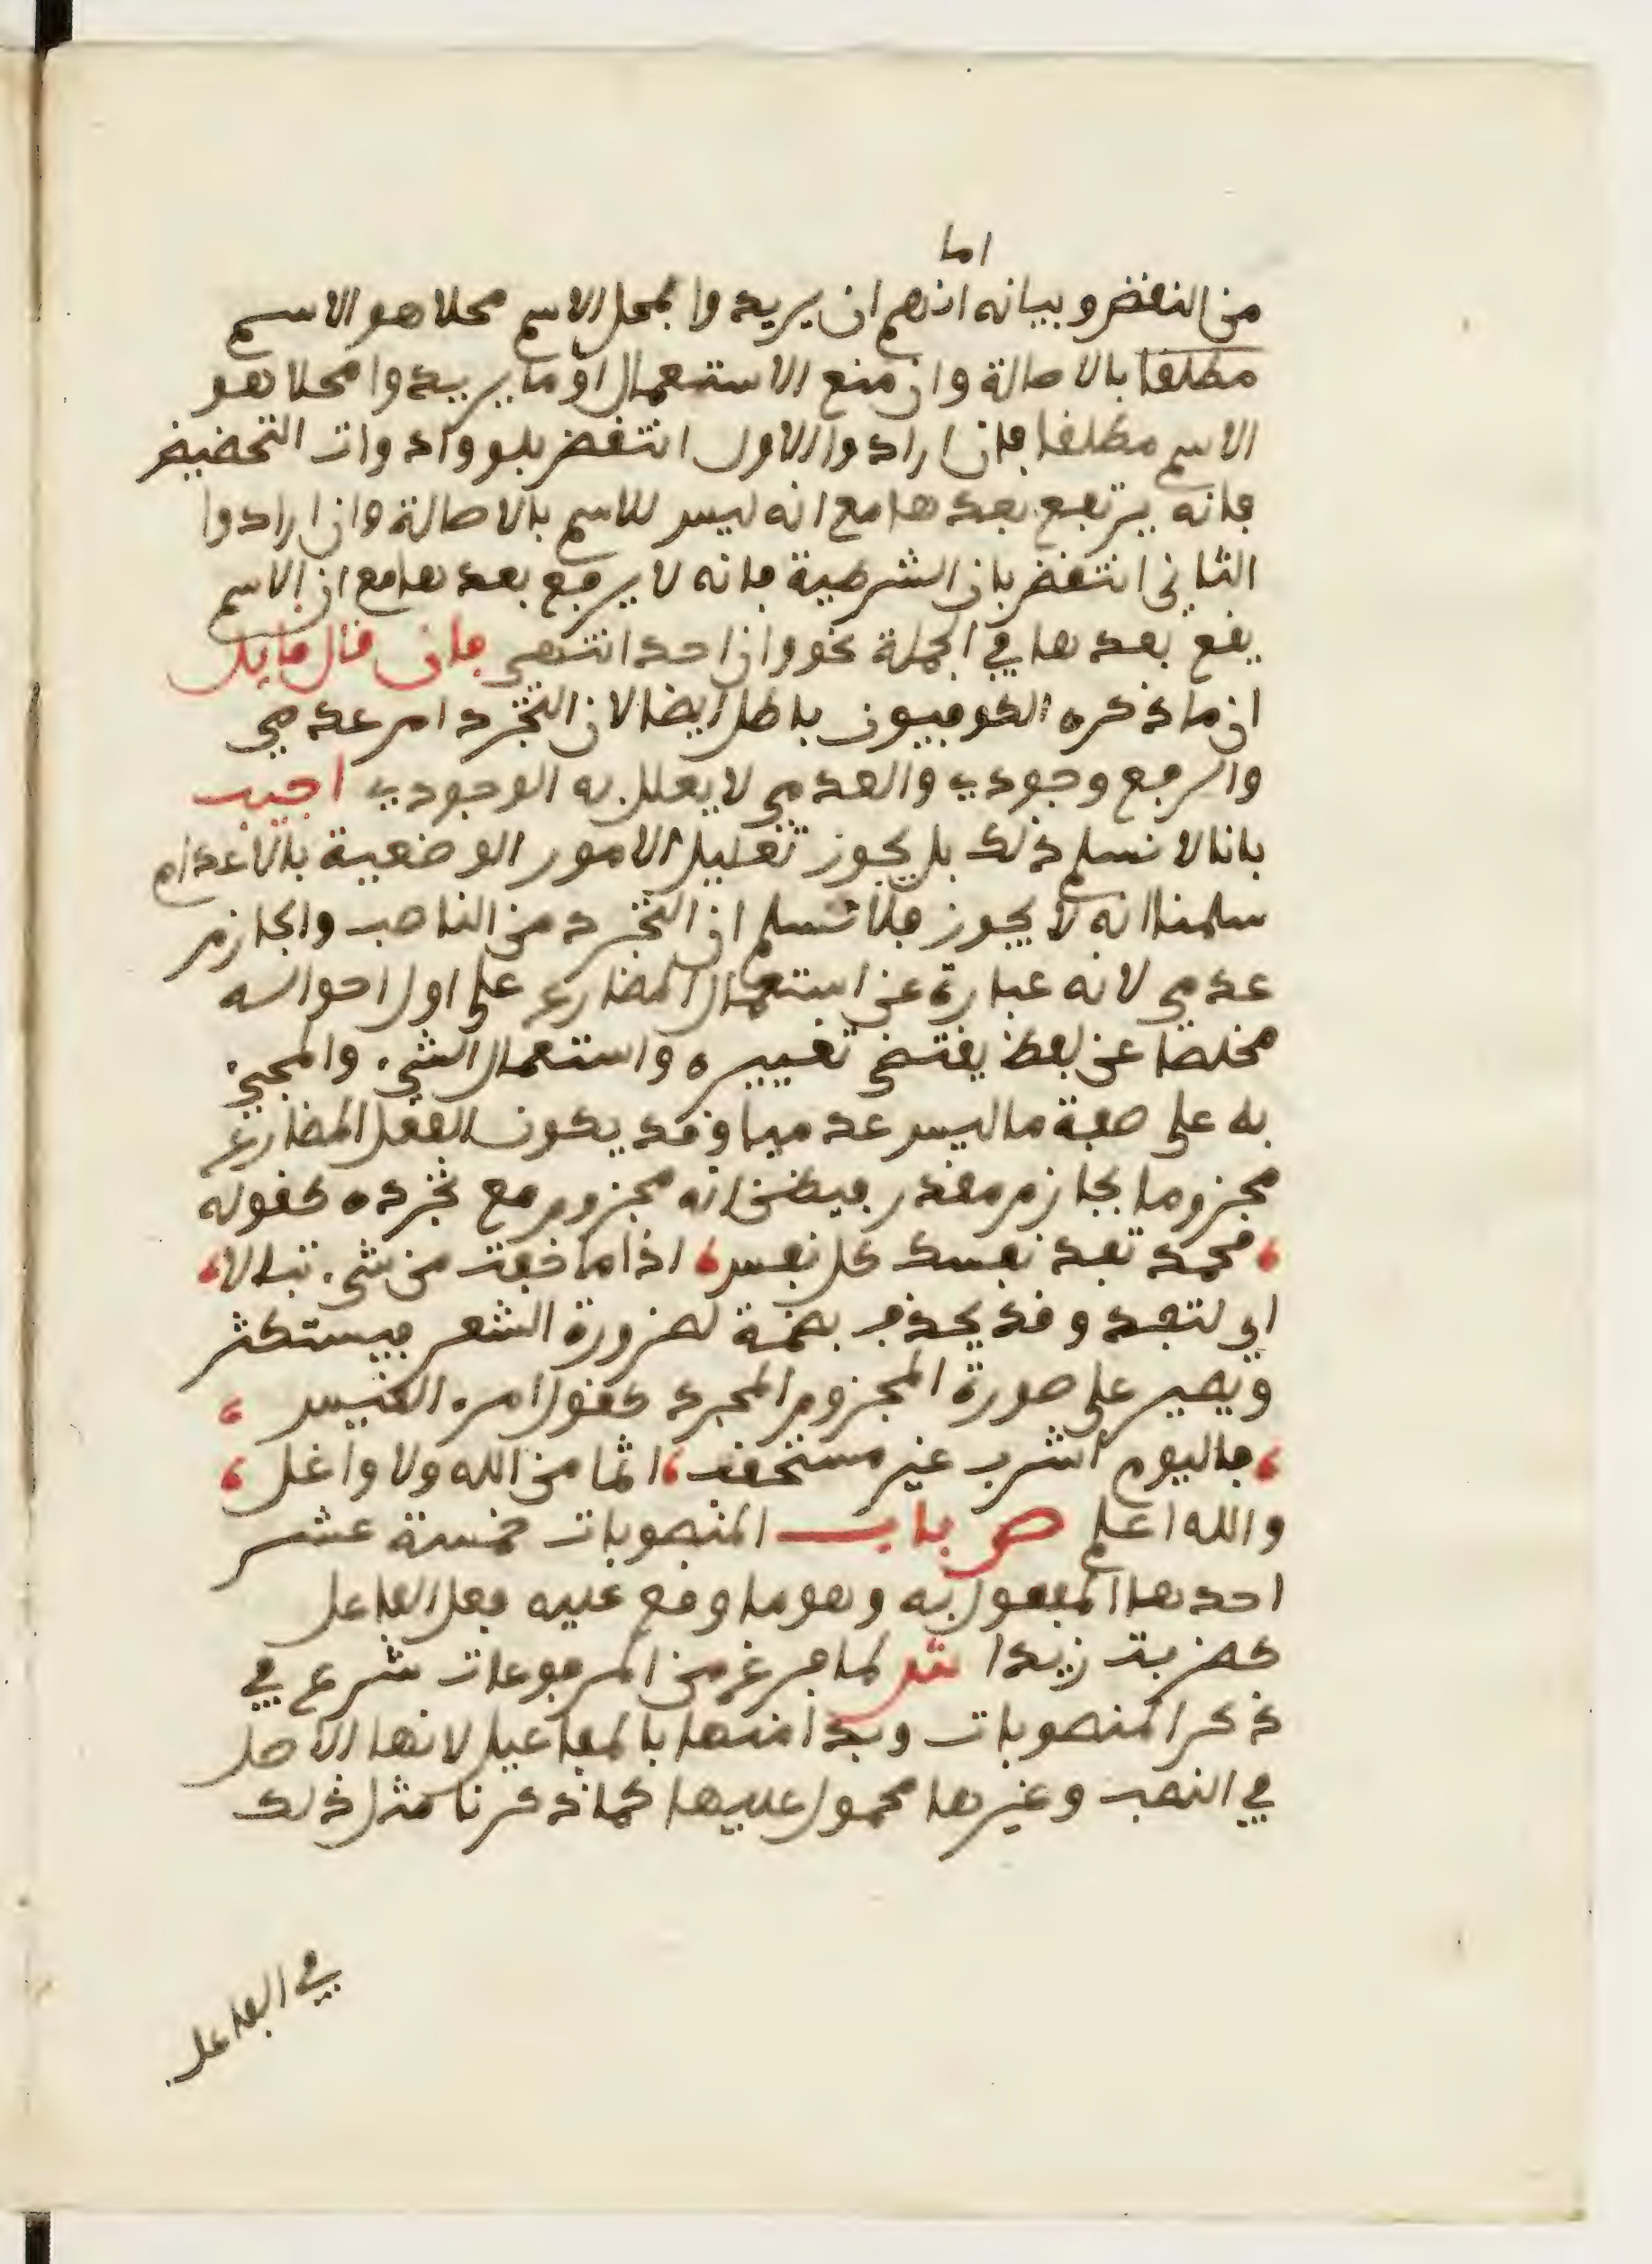 اما
من النقض وبيانه انهم ان يريدوا بمحل الاسم محلا هو الاسم
مطلقا بالاصالة وان منع الاستعمال او ما يريدوا محلا هو
الاسم مطلقا فان ارادوا الاول انتقض بلو وادوات التحضيض
فانه يرتفع بعدها مع انه ليس للاسم بالاصالة وان ارادوا
الثاني انتقض بان الشرطية فانه لا يرفع بعدها مع ان الاسم
يقع بعدها في الجملة نحو وان احد انتهى فان قال قايل
ان ما ذكره الكوفيون باطل ايضا لان التجرد امر عدمي
والرفع وجودي والعدمي لا يعلل به الوجودي اجيب
بانا لا نسلم ذلك بل يجوز تعليل الامور الوضعية بالاعدام
سلمنا انه لا يجوز فلا نسلم ان التجرد من الناصب والجازم
عدمي لانه عبارة عن استعمال المضارع على اول احواله
مخلصا عن لفظ يقتضي تغييره واستعمال الشيء والمجيء
به على صفة ما ليس عدميا وقد يكون الفعل المضارع
مجزوما بجازم مقدر فيظن انه مجزوم مع تجرده كقوله
محمد تفد نفسك كل نفس اذا ما خفت من شيء تبالا
اي لتفد وقد يحذف بضمة لضرورة الشعر فيستكثر
ويصير على صورة المجزوم المجرد كقول امرء القيس
فاليوم اشرب غير مستحقب اثما من الله ولا واغل
والله اعلم ص باب المنصوبات خمسة عشر
احدها المفعول به وهو ما وقع عليه فعل الفاعل
كضربت زيدا ش لما فرغ من المرفوعات شرع في
ذكر المنصوبات وبدا منها بالمفاعيل لانها الاصل
في النصب وغيرها محمول عليها كما ذكرنا مثل ذلك
في الفاعل